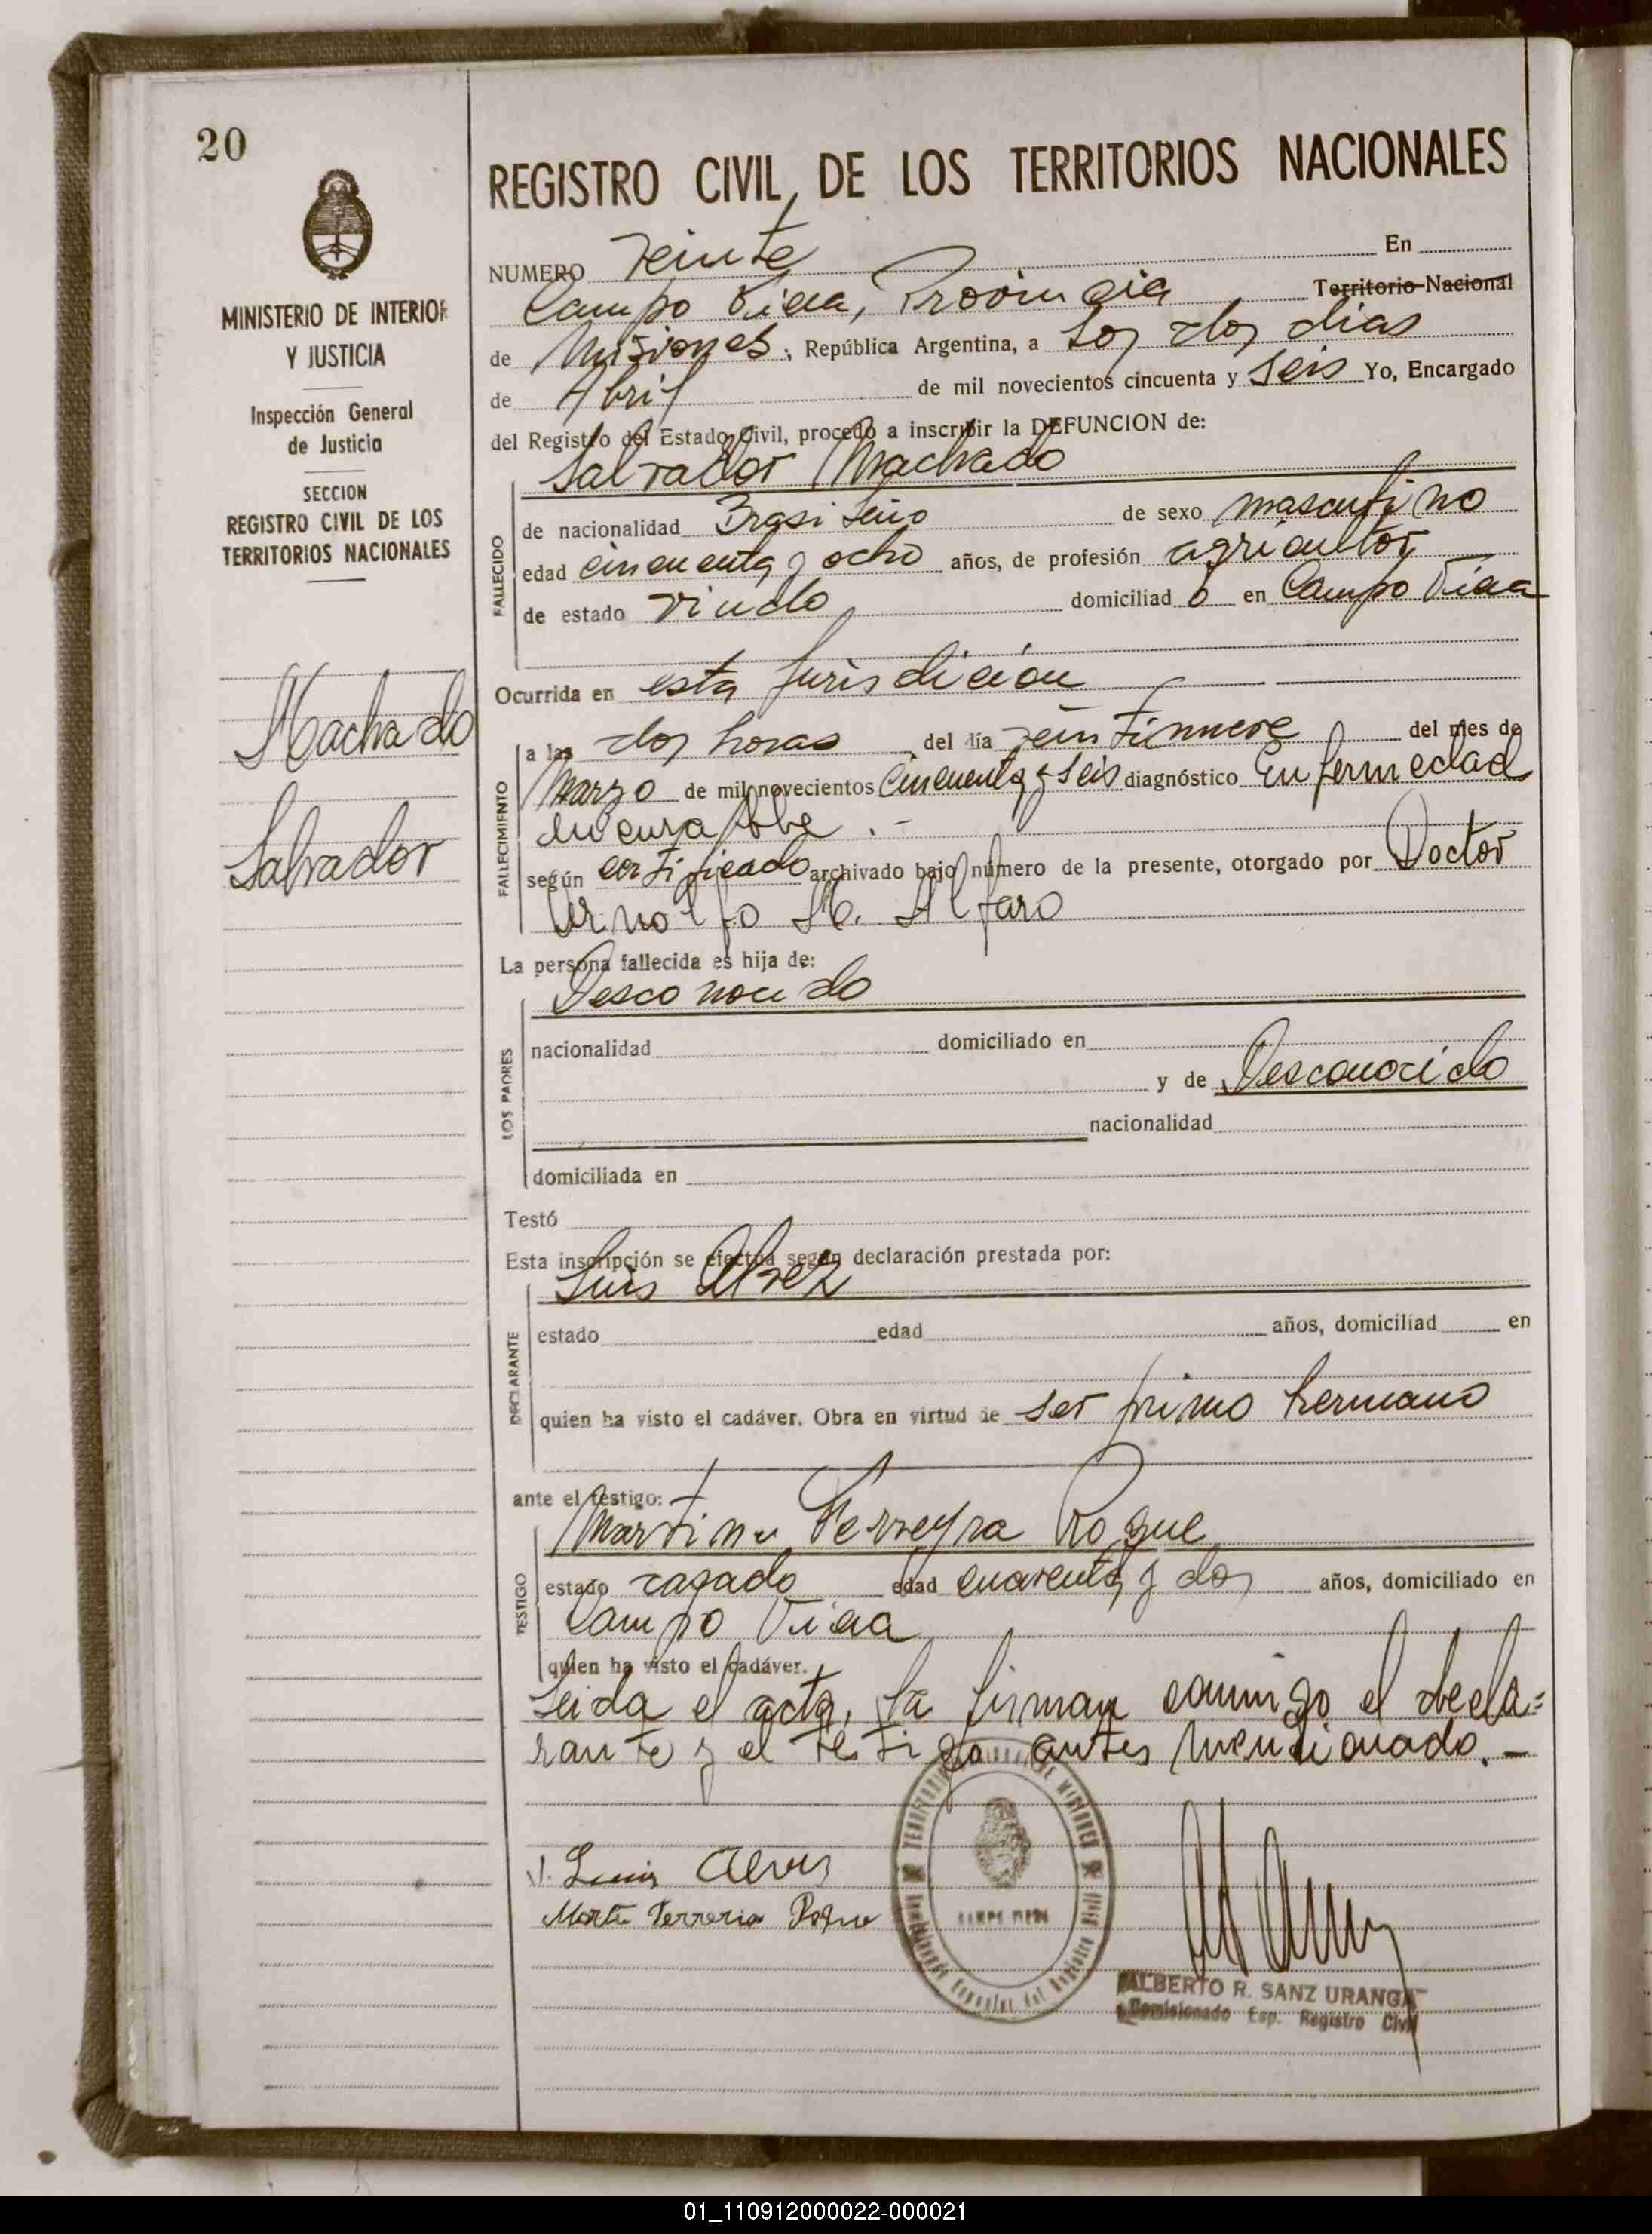 20
REGISTRO CIVIL DE LOS TERRITORIOS NACIONALES
MINISTERIO DE INTERIOR
Y JUSTICIA
Inspección General
de Justicia
SECCION
REGISTRO CIVIL DE LOS
TERRITORIOS NACIONALES
Machado
Salvador
NUMERO Veinte En
Campo Viera, Provincia Territorio Nacional
de Misiones, República Argentina, a los dos dias
de Abril de mil novecientos cincuenta y seis Yo, Encargado
del Registro del Estado Civil, procedo a inscribir la DEFUNCION de:
Salvador Machado
FALLECIDO
de nacionalidad Brasileño de sexo masculino
edad cincuenta y ocho años, de profesión agricultor
de estado viudo domiciliad o en Campo Viera
Ocurrida en esta Jurisdicion
FALLECIMIENTO
a las dos horas del día veintinueve del mes de
Marzo de mil novecientos cincuenta y seis diagnóstico Enfermedad
incurable .-
según certificado archivado bajo número de la presente, otorgado por Doctor
Arnolfo M. Alfaro
La persona fallecida es hija de:
Desconocido
LOS PADRES
nacionalidad domiciliado en
y de Desconocido
nacionalidad
domiciliada en
Testó
Esta inscripción se efectua según declaración prestada por:
Luis Alvez
DECLARANTE
estado edad años, domiciliad en
quien ha visto el cadáver. Obra en virtud de ser primo hermano
ante el testigo:
Martin Ferreyra Roque
TESTIGO
estado casado edad cuarenta y dos años, domiciliado en
Campo Viera
quien ha visto el cadáver.
Leida el acta, la firman conmigo el decla=
rante y el testigo antes mencionado.-
Luis Alves
Martin Ferreria Roque
CAMPO VIERA
ALBERTO R. SANZ URANGA
Comisionado Esp. Registro Civil
01_110912000022-000021